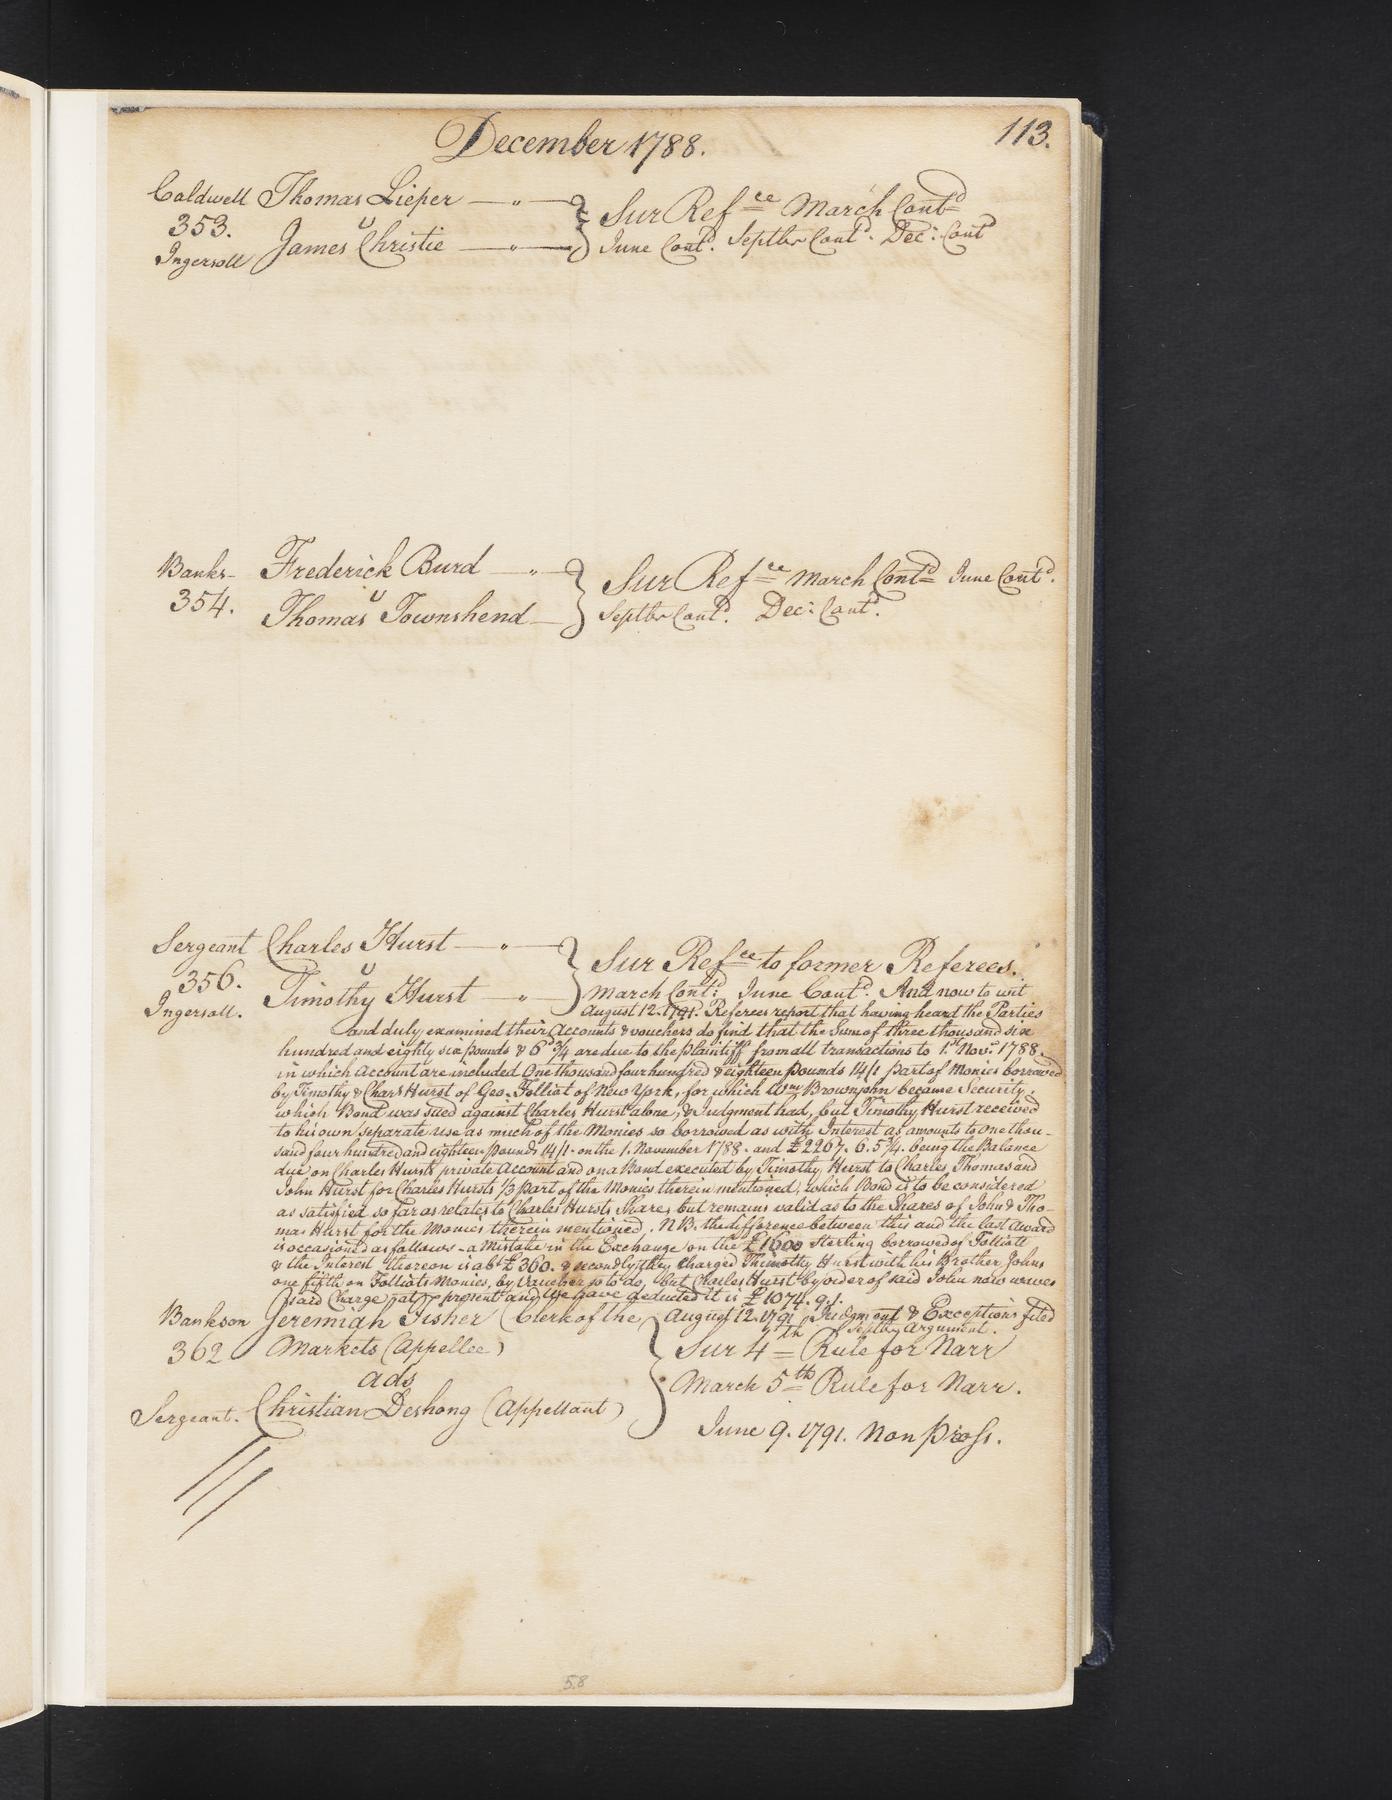 December 1788.
113.
Caldwell Thomas Lieper — " — } Sur Ref ce March Contd
353. v
Ingersoll James Christie — " — June Contd. Septbr Contd. Dec: Contd
Banks- Frederick Burd — " } Sur Ref ce March Contd June Contd.
354. v
Thomas Townshend — Septbr Contd. Dec: Contd.
Sergeant Charles Hurst — " — } Sur Ref ce to former Referees.
356. v
Ingersoll. Timothy Hurst — " — March Contd: June Contd. And now to wit
August 12. 1791. Referees report that having heard the Parties
and duly examined their Accounts & vouchers do find that the Sum of three thousand six
hundred and eighty six pounds & 6d 3/4 are due to the plaintiff from all transactions to 1st Novr. 1788.
in which Account are included One thousand four hundred & eighteen pounds 14/1 part of Monies borrowed
by Timothy & Chars Hurst of Geo. Folliot of New York, for which Wm Brownjohn became Security,
which Bond was sued against Charles Hurst alone, & Judgment had, but Timothy Hurst received
to his own separate use as much of the Monies so borrowed as with Interest as amounts to One thou-
sand four hundred and eighteen pounds 14/1. on the 1. November 1788. and £2267. 6. 5 3/4. being the Balance
due on Charles Hursts private Account and on a Bond executed by Timothy Hurst to Charles Thomas and
John Hurst for Charles Hursts 1/3 part of the Monies therein mentioned, which Bond is to be considered
as satisfied so far as relates to Charles Hursts Share, but remains valid as to the Shares of John & Tho-
mas Hurst for the Monies therein mentioned. NB. the difference between this and the last award
is occasioned as follows - a Mistake in the Exchange on the £1600 Sterling borrowed of Folliott
& the Interest thereon is abt £360. & secondly they Charged Thimothy Hurst with his Brother Johns
one fifth on Folliots Monies, by Voucher so to do, but Charles Hurst by order of said John now waves
said Charge at present and We have deducted it is £1074. 9. 1.
August 12. 1791 Judgment & Exceptions filed
Septbr Argument.
Bankson Jeremiah Fisher Clerk of the } Sur 4th Rule for Narr
362 Markets (Appellee)
ads March 5th Rule for Narr.
Sergeant. Christian Deshong (Appellant)
June 9. 1791. Non pross.
58